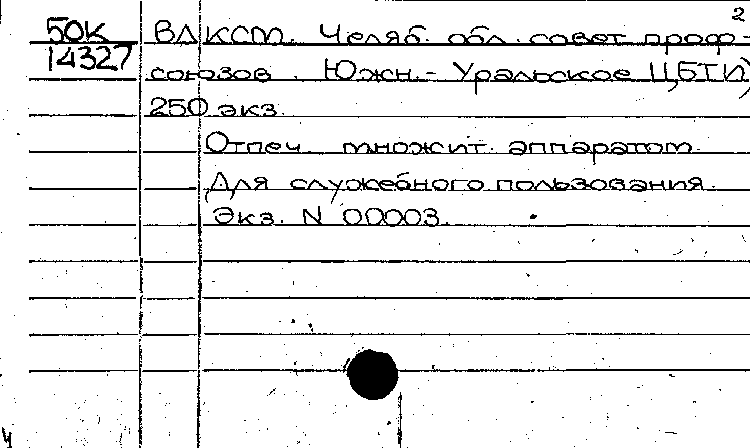 2
50К ВЛКСМ. Челяб. обл. совет проф-
14327 союзов. Южн.-Уральское ЦБТИ)
250 экз.
Отпеч. множит. аппаратом.
Для служебного пользования.
Экз. N 00003.